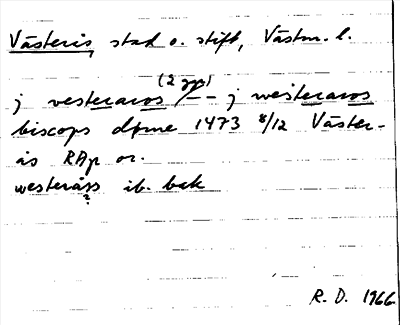 Västerås, stad o. stift, Västm. l.
(2 ggr)
j vesteraros /– – j westeraros
biscops döme 1473 8/12 Väster-
ås RAp or.
westeräss ib. bak
?
R. D. 1966